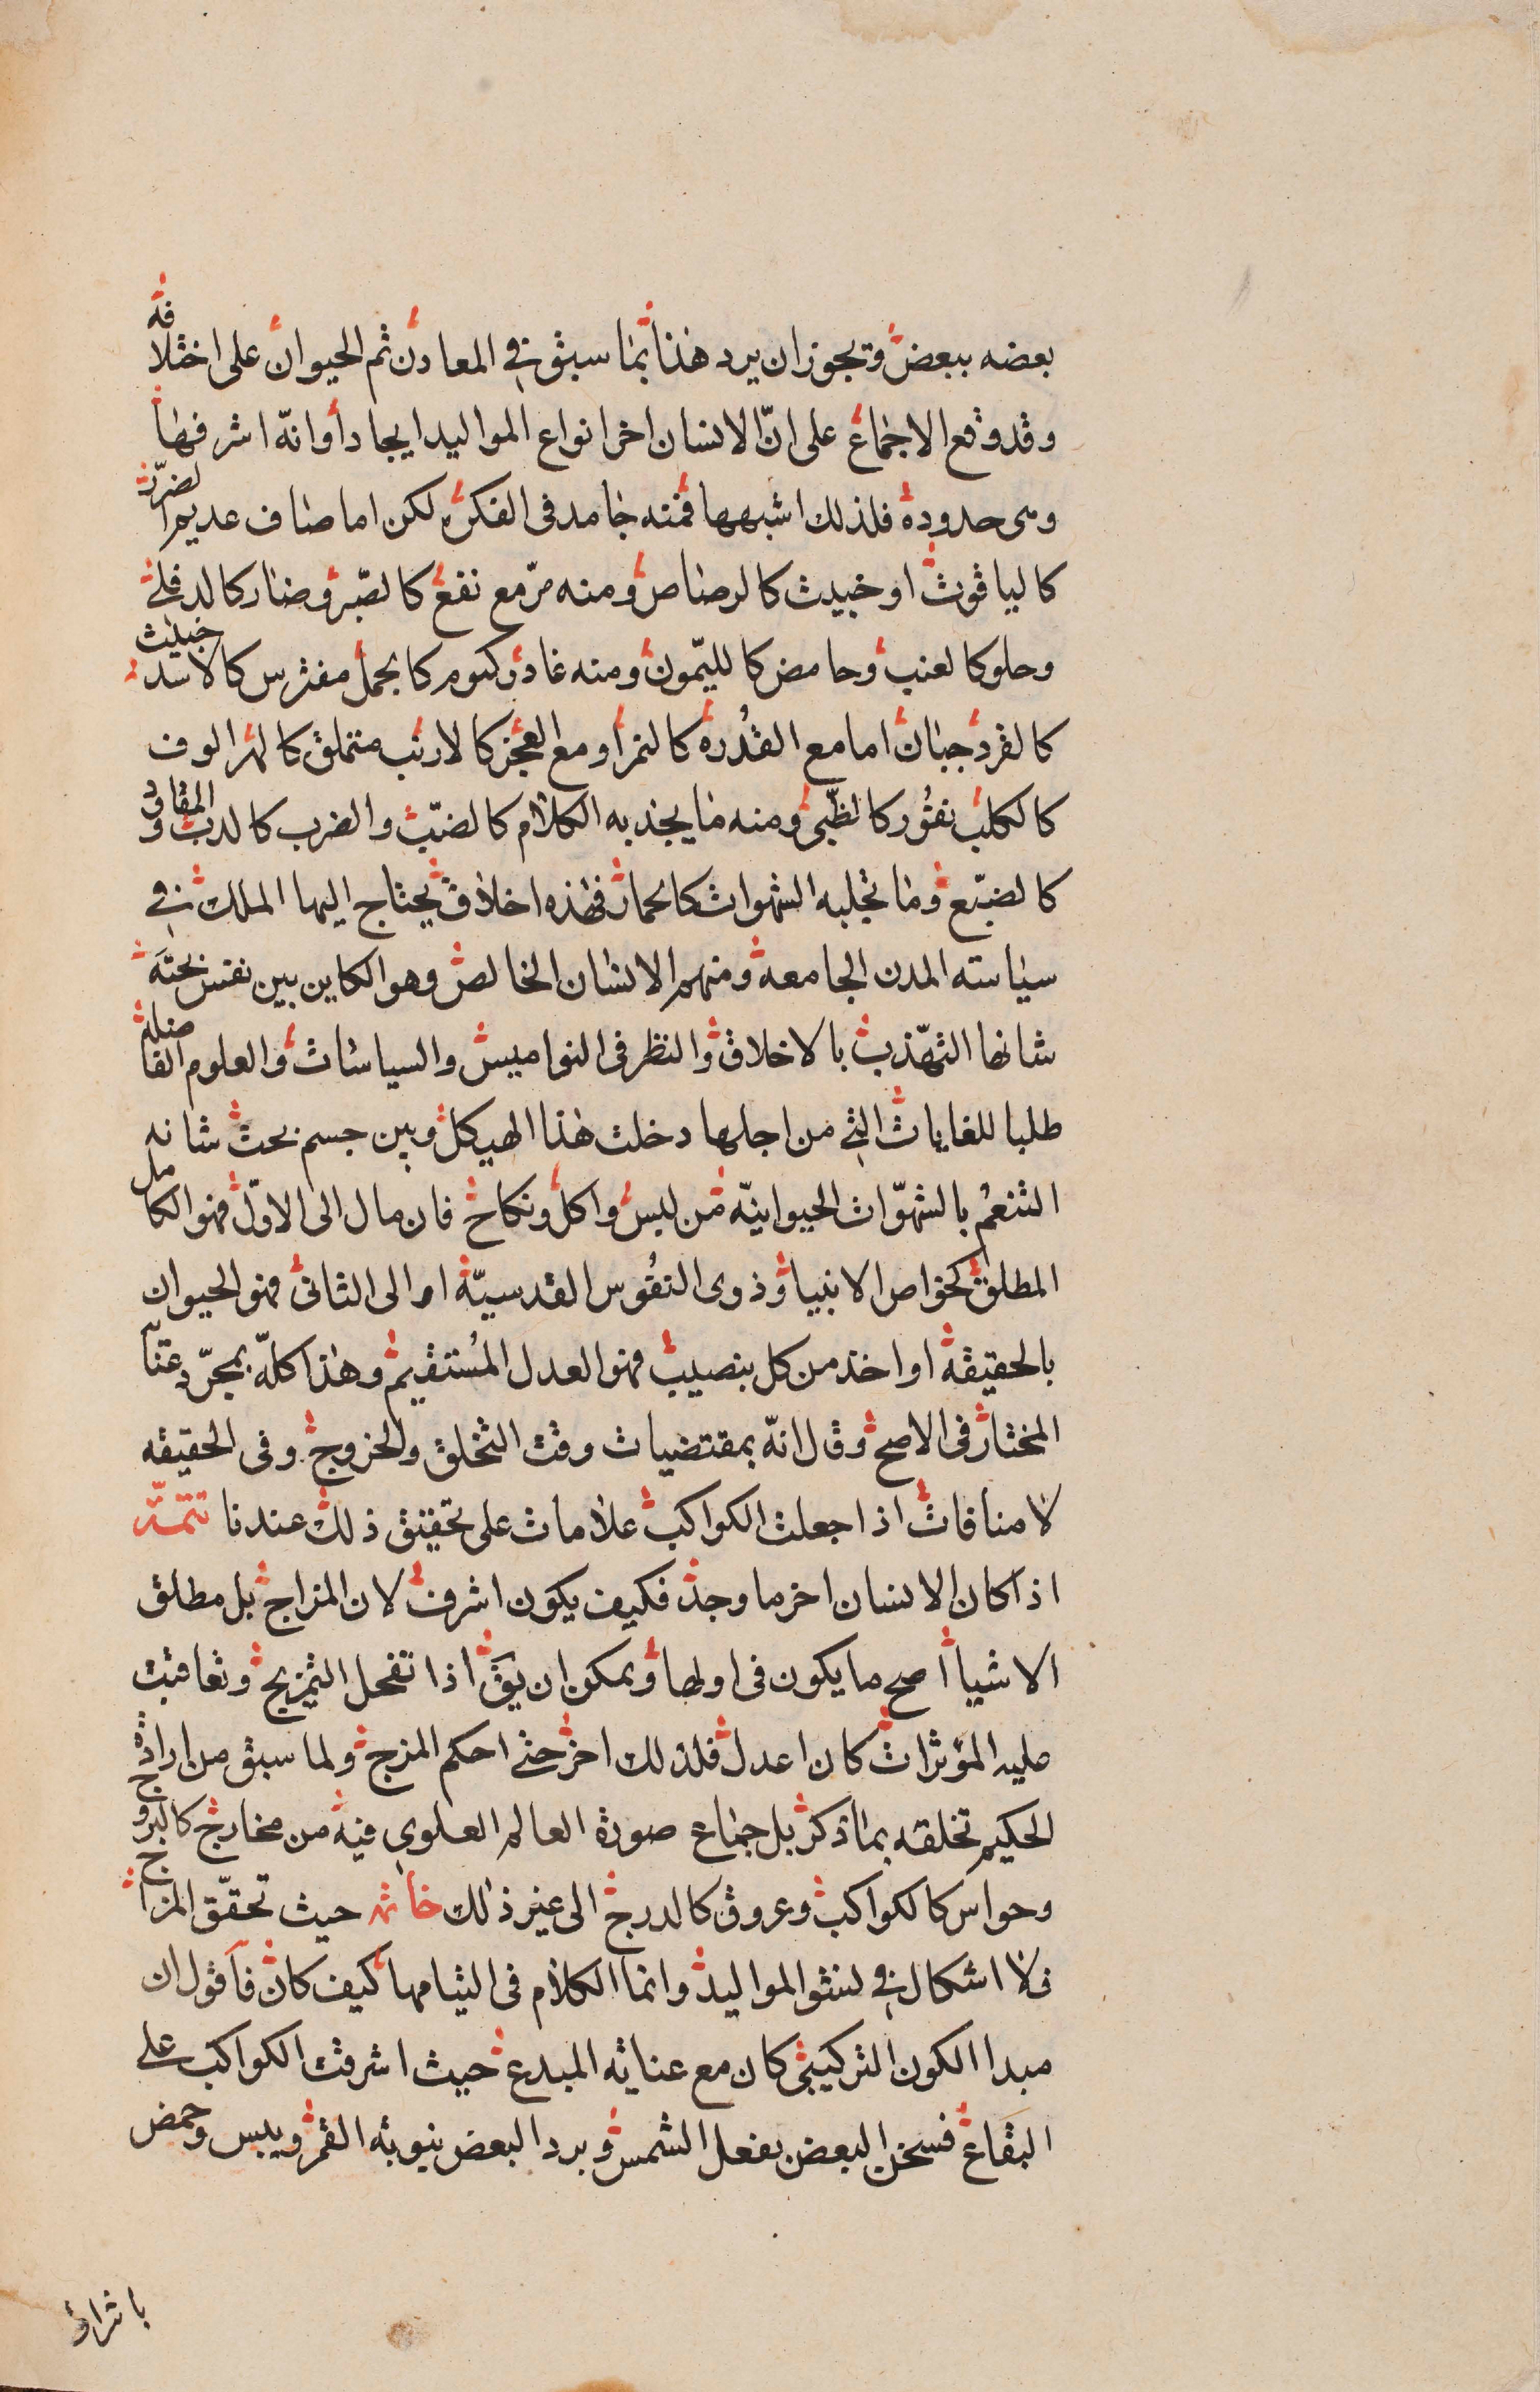 بعضه ببعض ويجوز ان يرد هذا بما سبق في المعادن ثم الحيوان على اختلافه
وقد وقع الاجماع على انّ الانسان اخر انواع المواليد ايجادا وانّه اشرفها
وهى حدوده فلذلك اشبهها فمنه جامد فى الفكر لكن اما صاف عديم الضرر
كالياقوت او خبيث كالرصاص ومنه مرّ مع نفع كالصّبر وضار كالدفلى
وحلو كالعنب وحامض كالليّمون ومنه غادر كتوم كالجمل مفترس كالاسد خبيث
كالقرد جبان اما مع القُدره كالنمر او مع العجز كالارنب متملق كالهر الوف
كالكلب نفُور كالظّبى ومنه ما يجذبه الكلام كالضبّ والضرب كالدب والمقاود
كالضبّع وما تجلبه الشهوات كالحمار فهذه اخلاق يحتاج اليها الملك في
سياسته المدن الجامعه ومنهم الانسان الخالص وهو الكاين بين نفس بحتَه
شانها التهّذب بالاخلاق والنظر فى النواميس والسياسات والعلوم الفاضله
طلبا للغايات التي من اجلها دخلت هذا الهيكل وبين جسم بحت شانه
التنعُم بالشهّوات الحيوانيّه من لبس واكل ونكاح فان مال الى الاوّل فهو الكامل
المطلق كخواص الانبيا وذوى النفُوس القدسيّه او الى الثانى فهو الحيوان
بالحقيقه او اخذ من كل بنصيب فهو العدل المُستقيم وهذا كلّه بمجرّد عنايه
المختار فى الاصح وقال انّه بمقتضيات وقت التخلق والخروج وفى الحقيقه
لا منافات اذا جعلت الكواكب علامات على تحقيق ذلك عندنا تتمّه
اذا كان الانسان اخر ما وجد فكيف يكون اشرف لان المزاج بل مطلق
الاشيا اصح ما يكون فى اولها ويمكن ان يقَ اذا تفحل التمزيج وتعاقبت
عليه المؤثرات كان اعدل فلذلك اخر حتى احكم المزج ولما سبق من اراده
الحكيم تخلقه بما ذكر بل جماع صورة العالم العلوى فيه من مخارج كالبروج
وحواس كالكواكب وعروق كالدرج الى غير ذلك خاتمه حيث تحقّق المزاج
فلا اشكال في لنشو المواليد وانما الكلام فى التيامها كيف كان فاقول ان
مبدا الكون التركيبى كان مع عنايه المبدع حيث اشرقت الكواكب على
البقاع فسخن البعض بفعل الشمس وبرد البعض بنوبه القمر ويبس وحمض
باشراق